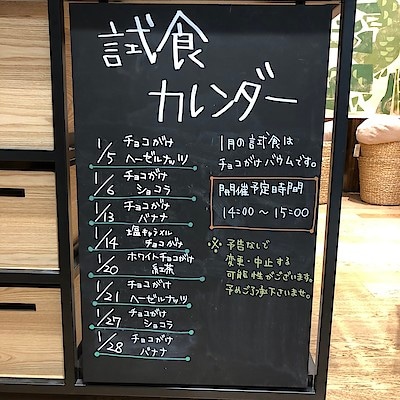 試食
カレンダー
1/5 チョコがけ
ヘーゼルナッツ
1/6 チョコがけ
ショコラ
1/13 チョコがけ
バナナ
1/14 塩キャラメル
チョコがけ
1/20 ホワイトチョコがけ
紅茶
1/21 チョコがけ
ヘーゼルナッツ
1/27 チョコがけ
ショコラ
1/28 チョコがけ
バナナ
1月の試食は
チョコがけバウムです。
開催予定時間
14:00～15:00
※予告なしで
変更・中止する
可能性がございます。
予めご了承下さいませ。